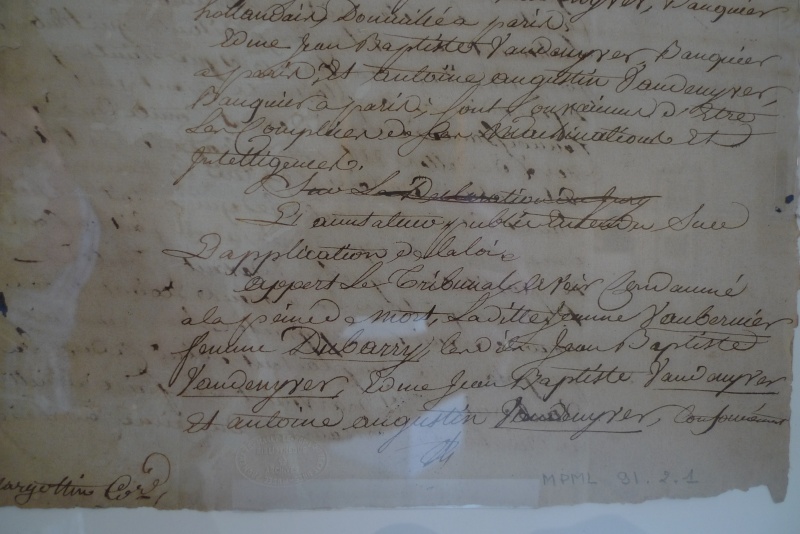 hollandais Domicilié a paris,
Edme Jean Baptiste Vandenyver, Banquier
a paris, Et antoine augustin Vandenyver,
Banquier a paris, sont convaincus d'Etre
Les Complices de ces Machinations et
Intelligences.
Sur La Declaration du Jury
L'accusateur public Entendu Sur
L'application de la loi
appert Le Tribunal avoir Condamné
a la peine de mort, Laditte jeanne Vaubernier
femme Dubarry, Jean Baptiste
Vandenyver, Edme Jean Baptiste Vandenyver
Et antoine augustin Vandenyver, Conformément
MPML 91.2.1